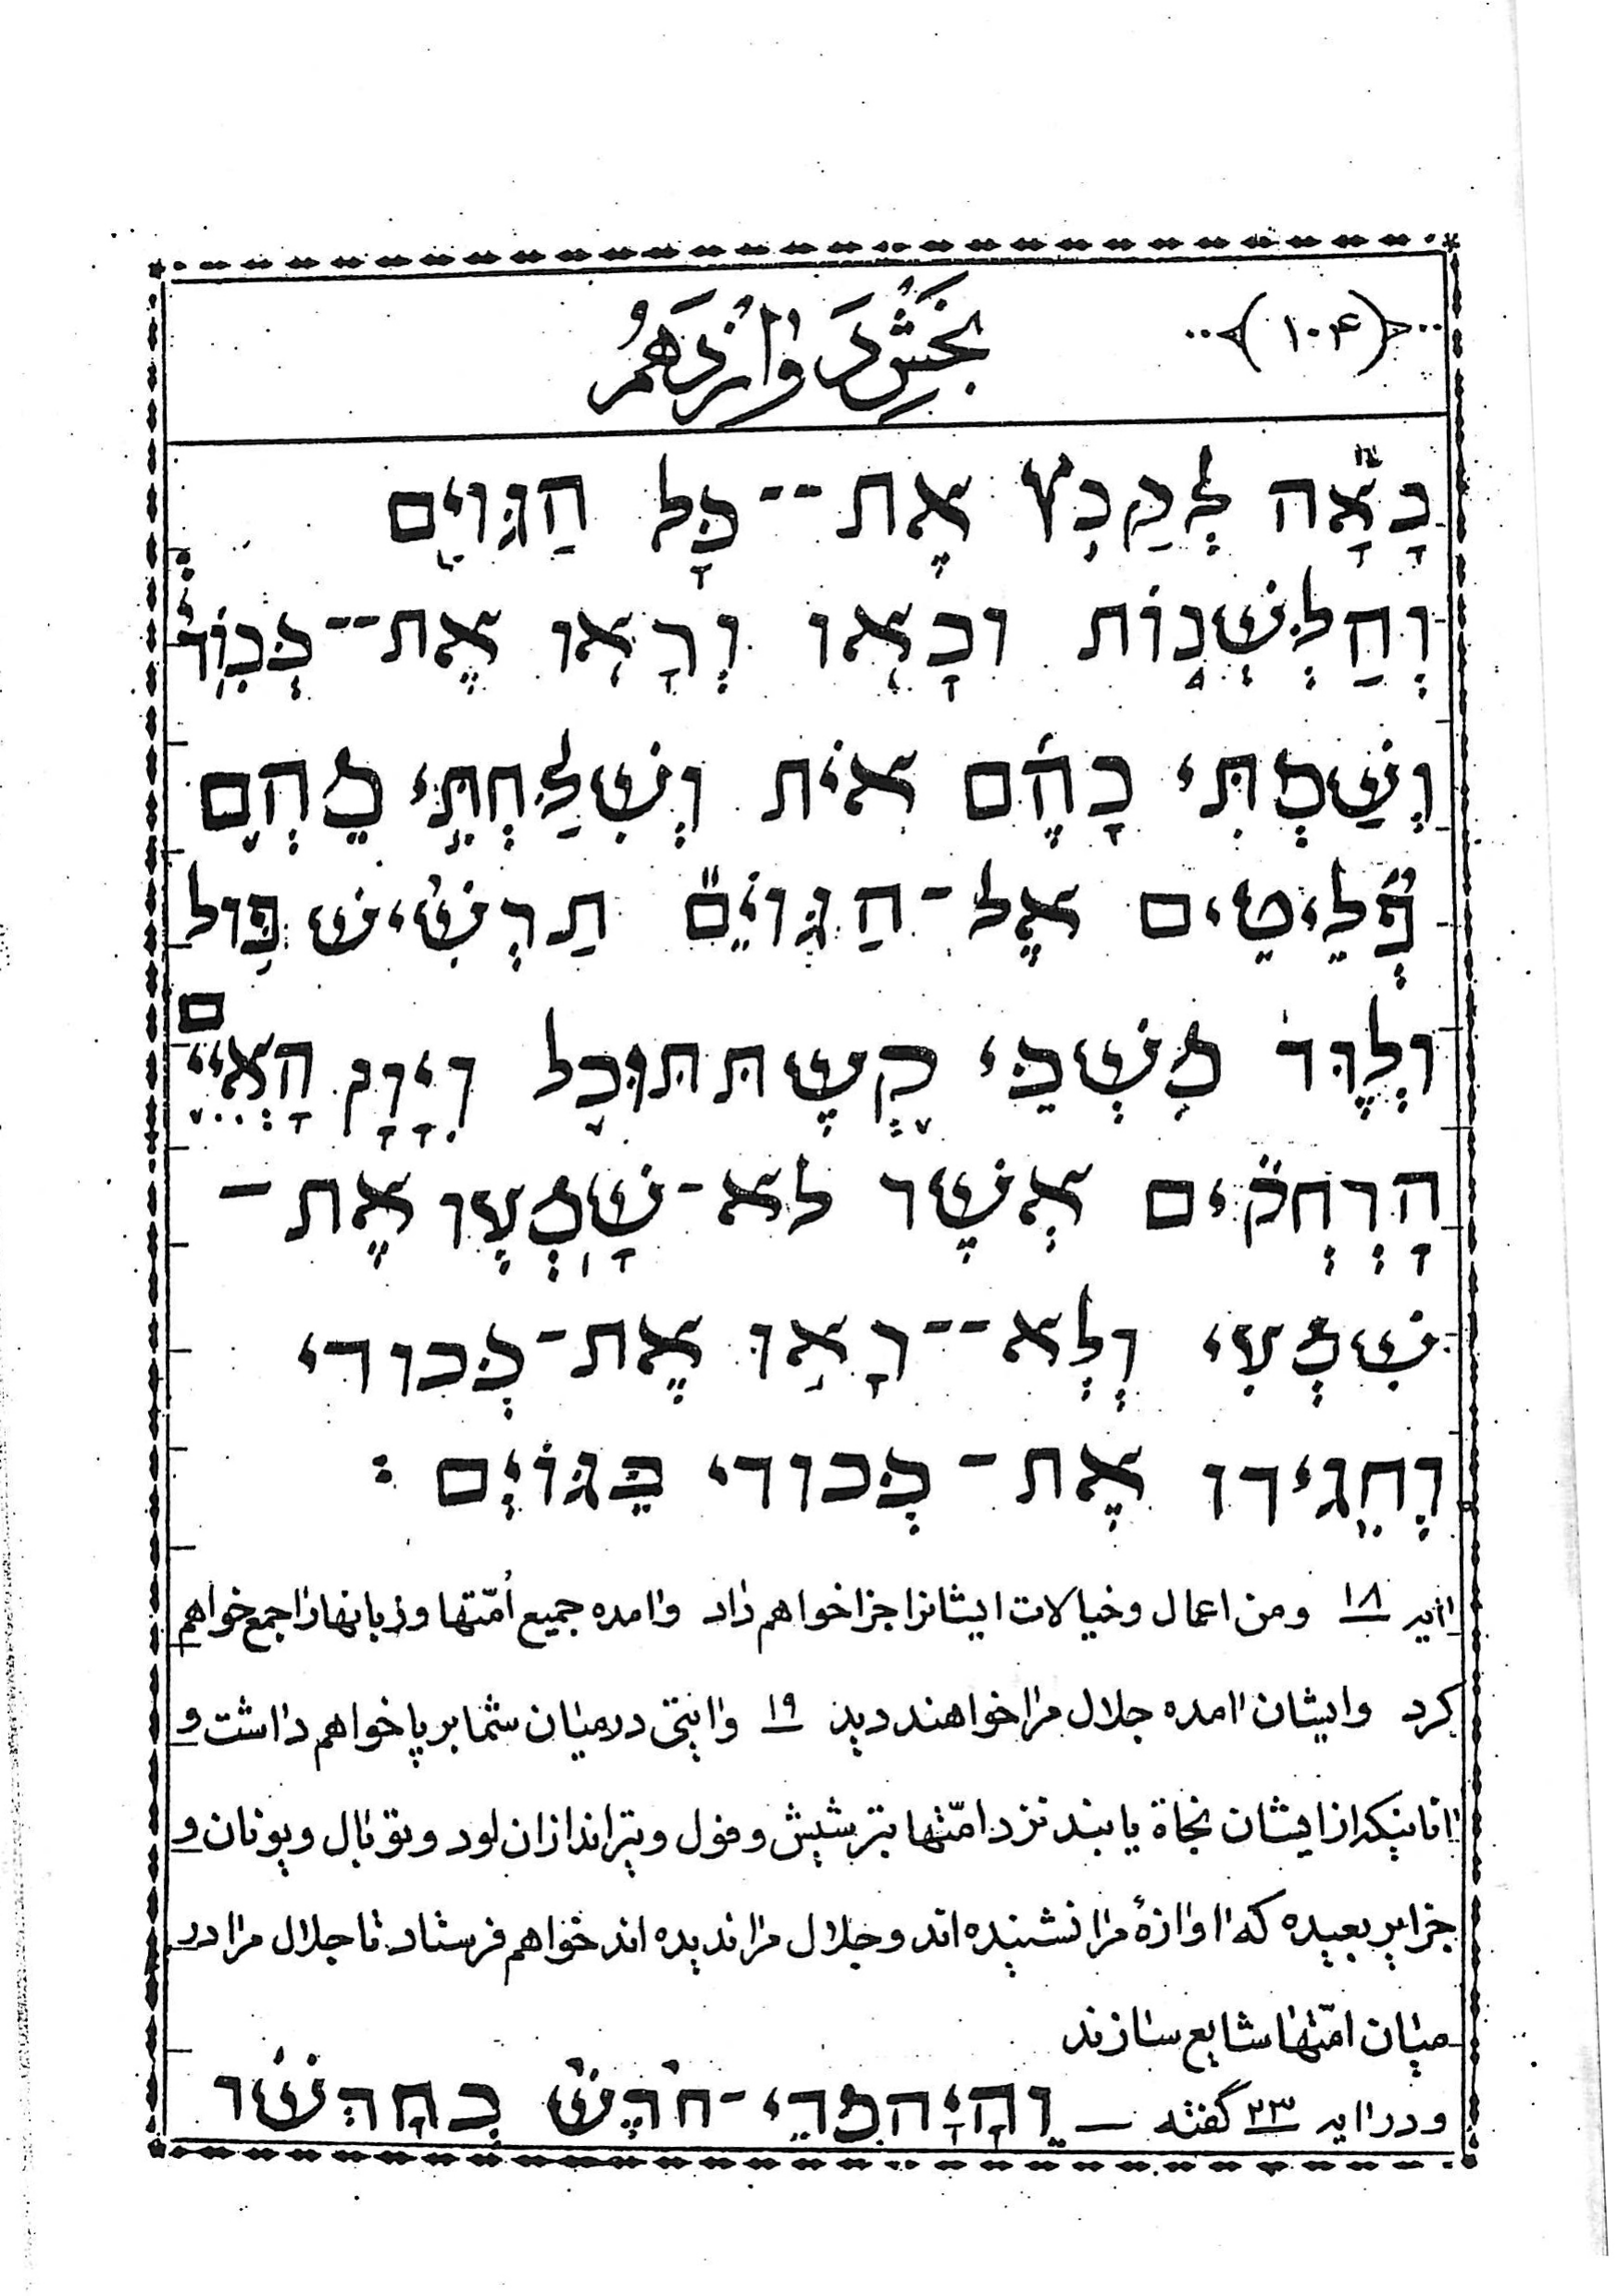 (۱۰۴)
بخش دوازدهم
בָאָה לְקַבִץ אֶת--כָּל הַגּוֹיִם
וְחַלְּשֹׁנוֹת וּבָאוּ וְרָאוּ אֶת--כְּבוֹדִי
וְשַׂמְתִּי בָהֶם אוֹת וְשִׁלַּחְתִּי מֵהֶם
פְּלֵיטִים אֶל-הַגּוֹיִם תַּרְשִׁישׁ פּוּל
וְלוּד מֹשְׁכֵי קֶשֶׁת תּוּבַל וְיָוָן הָאִיִּים
הָרְחֹקִים אֲשֶׁר לֹא-שָׁמְעוּ אֶת-
שִׁמְעִי וְלֹא--רָאוּ אֶת-כְּבוֹדִי
וְחִגִּידוּ אֶת-כְּבוֹדִי בַּגּוֹיִם :
اایه ۱۸ ومن اعمال وخیالات ایشانرا جزا خواهم داد وامده جمیع اُمّتها وزبانهارا جمع خواهم
کرد وایشان اامده جلال مرا خواهند دید ۱۹ واایتی درمیان شما برپا خواهم دااشت و
اانانیکه از ایشان نجاة یابند نزد امّتها بترشیش وفول وتیراندازان لود وتوبال ویونان و
جزایر بعیده که ااوازهٔ مرا نشنیده اند وجلال مرا ندیده اند خواهم فرستاد تا جلال مرا در
میان امّتها شایع سازند
ودر اایه ۲۳ گفته — וְהָיָה מִדֵּי-חֹדֶשׁ בְּחָדְשׁוֹ